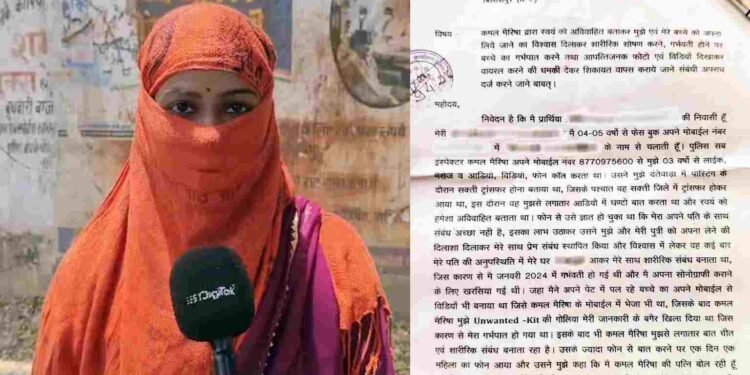 BESTDigiTek
बुधवारी बाजा
बिलासपुर
विषय कमल मैरिषा द्वारा स्वयं को अविवाहित बताकर मुझे एवं मेरे बच्चे को अपना
लिये जाने का विश्वास दिलाकर शारीरिक शोषण करने, गर्भवती होने पर
बच्चे का गर्भपात करने तथा आपत्तिजनक फोटो एवं विडियो दिखाकर
वायरल करने की धमकी देकर शिकायत वापस कराये जाने संबंधी अपराध
दर्ज करने जाने बाबत्।
महोदय,
निवेदन है कि मै प्रार्थिया की निवासी हूँ
मेरी मै 04-05 वर्षो से फेस बुक अपने मोबाईल नंबर
में के नाम से चलाती हूँ। पुलिस सब
इंस्पेक्टर कमल मैरिषा अपने मोबाईल नंबर 8770975600 से मुझे 03 वर्षो से लाईक,
मैसेज व आडियो, विडियो, फोन कॉल करता था। उसने मुझे दंतेवाड़ा में पोस्टिंग के
दौरान सक्ती ट्रांसफर होना बताया था, जिसके पश्चात वह सक्ती जिले में ट्रांसफर होकर
आया था, इस दौरान वह मुझसे लगातार आडियो में घण्टो बात करता था और स्वयं को
हमेशा अविवाहित बताता था। फोन से उसे ज्ञात हो चुका था कि मेरा अपने पति के साथ
संबंध अच्छा नही है, इसका लाभ उठाकर उसने मुझे और मेरी पुत्री को अपना लेने की
दिलाशा दिलाकर मेरे साथ प्रेम संबंध स्थापित किया और विश्वास में लेकर वह कई बार
मेरे पति की अनुपस्थिति में मेरे घर आकर मेरे साथ शारीरिक संबंध बनाता था,
जिस कारण से मे जनवरी 2024 में गर्भवती हो गई थी और मै अपना सोनोग्राफी कराने
के लिए खरसिया गई थी। जहा मैने अपने पेट में पल रहे बच्चे का अपने मोबाईल से
विडियो भी बनाया था जिसे कमल मैरिषा के मोबाईल में भेजा भी था, जिसके बाद कमल
मैरिषा मुझे Unwanted -Kit की गोलिया मेरी जानकारी के बगैर खिला दिया था जिस
कारण से मेरा गर्भपात हो गया था। इसके बाद भी कमल मैरिषा मुझसे लगातार बात चीत
एवं शारीरिक संबंध बनाता रहा है। उसके ज्यादा फोन से बात करने पर एक दिन एक
महिला का फोन आया और उसने मुझे कहा कि मै कमल मैरिषा की पत्नि बोल रही हूँ